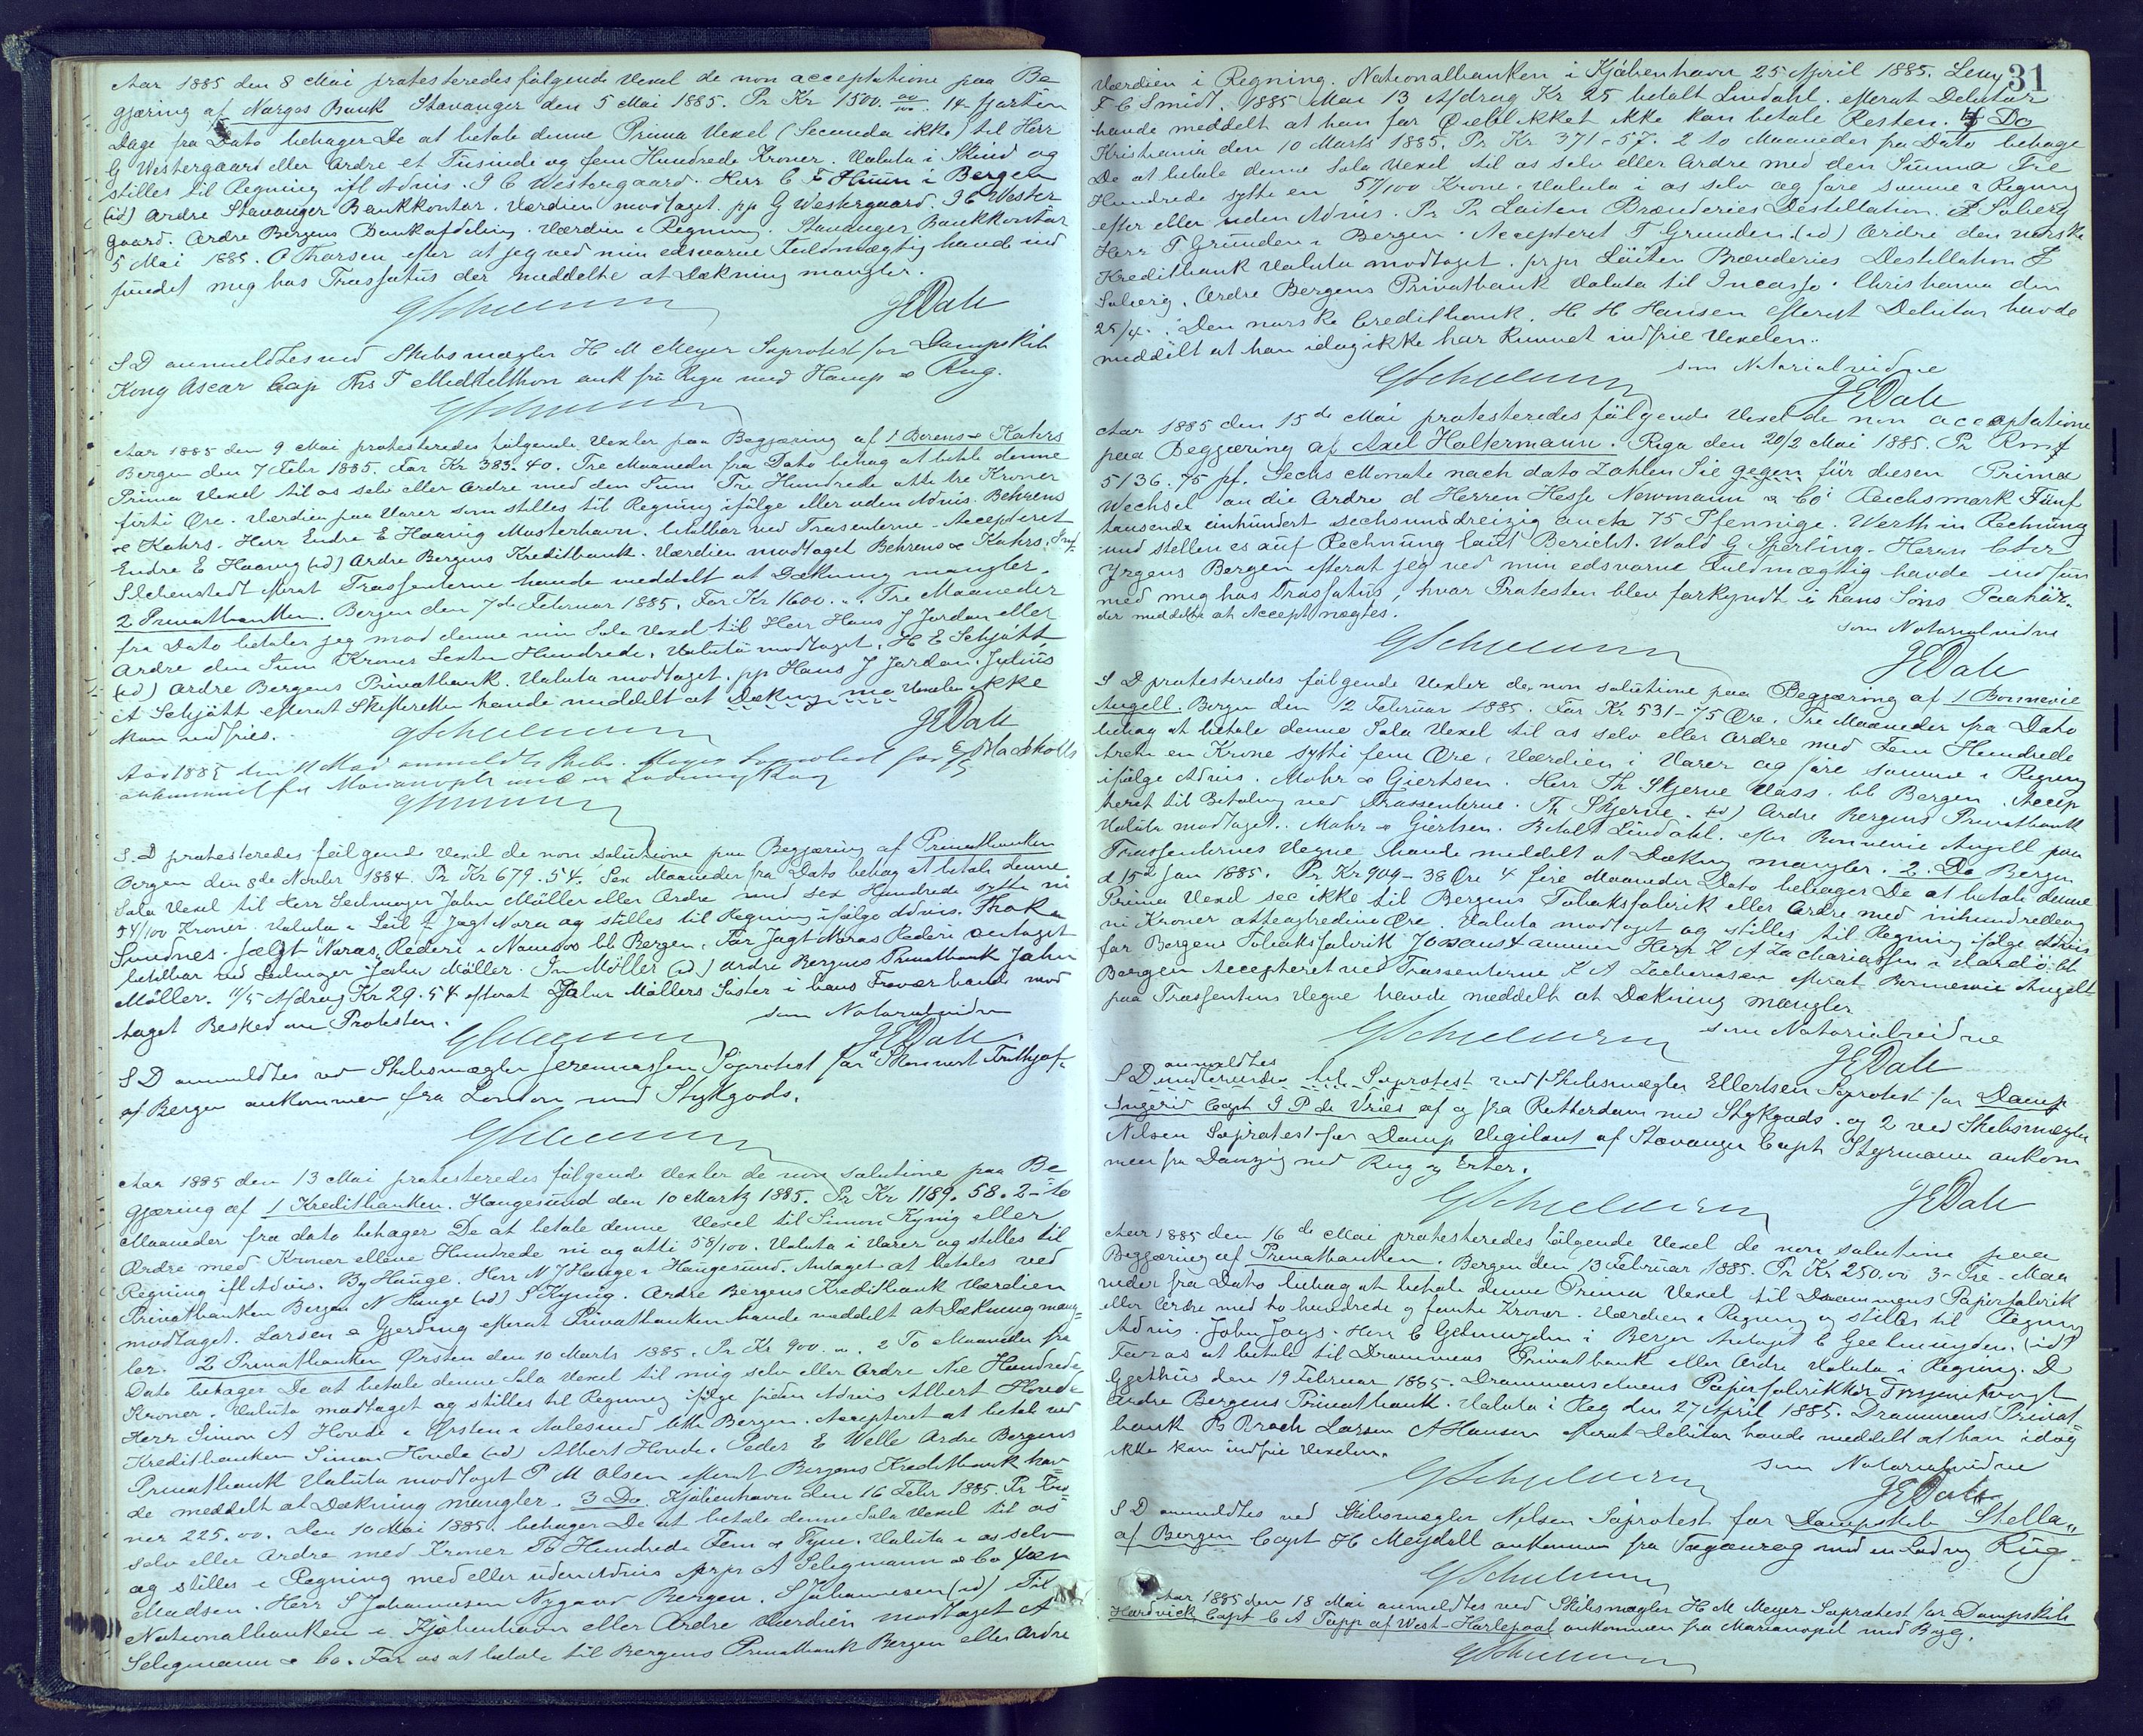 Aar 1885 den 8 Mai protesteredes følgende Vexel de non acceptatione paa Be
gjæring af Norges Bank Stavanger den 5 Mai 1885. Pr Kr 1500. 00/00. 14 fjorten
Dage fra Dato behager De at betale denne Prima Vexel (Secunda ikke) til Herr
G Westergaard eller Ordre et Tusinde og fem Hundrede Kroner. Valuta i Skind og
stilles til Regning ifl Advis. I C Westergaard. Herr C Huun i Bergen
(id) Ordre Stavanger Bankkontor. Værdien modtaget. pp G Westergaard. I C Wester
gaard. Ordre Bergens Bankafdeling. Værdien i Regning. Stavanger Bankkontor
5 Mai 1885. O Thorsen efter at jeg ved min edsvorne Fuldmægtig havde ind
fundet mig hos Trassatus der meddelte at Dækning mangler.
JEDale
S D anmeldtes ved Skibsmægler H M Meyer Søprotest for Dampskib
Kong Oscar Cap Ths T Middelthon ank fra Riga med Hamp & Rug.
Aar 1885 den 9 Mai protesteredes følgende Vexler paa Begjæring af 1 Berens & Kahrs
Bergen den 7 Febr 1885. For Kr 383.40. Tre Maaneder fra Dato behag at betale denne
Prima Vexel til os selv eller Ordre med den Sum Tre Hundrede otti tre Kroner
firti Øre. Værdien paa Varer som stilles til Regning ifølge eller uden Advis. Behrens
& Kahrs. Herr Endre E Haaving Mosterhavn. betalbar ved Trasenterne. Accepteret
Endre E Haaving (id) Ordre Bergens Kreditbank. Værdien modtaget Behrens & Kahrs.
efterat Trassenterne havde meddelt at Dækning mangler.
2 Privatbanken. Bergen den 7de Februar 1885. For Kr 1600. " . Tre Maaneder
fra Dato betaler jeg mod denne min Sola Vexel til Herr Hans J Jordan eller
Ordre den Sum Kroner Sexten Hundrede. Valuta modtaget. H E Schjött
(id) Ordre Bergens Privatbank. Valuta modtaget. pp Hans J Jordan. Julius
A Schjött efterat Skifteretten havde meddelt at Dækning ma Vexelen ikke
kan indfries.
JEDale
Aar 1885 den 11 Mai anmeldte Skibs. Meyer Søprotest for
ankommet fra Marianopel med en Ladning Rug
S. D protesteredes følgende Vexel de non solutione paa Begjæring af Privatbanken
Bergen den 8de Novbr 1884. Pr Kr 679.54. Sex Maaneder fra Dato behag at betale denne
Sola Vexel til Herr Seilmager John Möller eller Ordre med sex Hundrede sytti ni
54/100 Kroner. Valuta i Seil t Jagt Nora og stilles til Regning ifølge Advis.
Sundnes. Jagt Noras Rederi i Namsos bb Bergen. For Jagt Noras Rederi antaget
betalbar ved Seilmager John Möller. Jn Möller (id) Ordre Bergens Privatbank John
Möller. 11/5 Afdrag Kr 29.54 efterat John Möllers Søster i hans Fravær havde mod
taget Besked om Protesten.
som Notarialvidne
JEDale
S D anmeldtes ved Skibsmægler Jeremiassen Søprotest for Skonnert Frithjof
af Bergen ankommen fra London med Stykgods.
Aar 1885 den 13 Mai protesteredes følgende Vexler de non solutione paa Be
gjæring af 1 Kreditbanken. Haugesund den 10 Marts 1885. Pr Kr 1189.58. 2-to
Maaneder fra dato behager De at betale denne Vexel til Simon Kynig eller
Ordre med Kroner elleve Hundrede ni og otti 58/100. Valuta i Varer og stilles til
Regning ifl Advis. By Hauge. Herr N J Hauge i Haugesund. Antaget at betales ved
Privatbanken Bergen N Hauge (id) S Kynig. Ordre Bergens Kreditbank Værdien
modtaget. Larsen & Gjerding efterat Privatbanken havde meddelt at Dækning mang-
ler. 2 Privatbanken Ørsten den 10 Marts 1885. Pr Kr 900. " . 2 To Maaneder fra
Dato behager De at betale denne Sola Vexel til mig selv eller Ordre Nie Hundrede
Kroner. Valuta modtaget og stilles til Regning ifølge uden Advis Albert Hovde
Herr Simon A Hovde i Ørsten i Aalesund btb Bergen. Accepteret at betale ved
Kreditbanken Simon Hovde (id) Albert Hovde. Peder E Welle Ordre Bergens
Privatbank Valuta modtaget P M Olsen efterat Bergens Kreditbank hav
de meddelt at Dækning mangler. 3 Do. Kjöbenhavn den 16 Febr 1885. Pr Kro
ner 225.00. Den 10 Mai 1885 behager De at betale denne Sola Vexel til os
selv eller Ordre med Kroner To Hundrede Fem & Tyve. Valuta i os selv
og stilles i Regning med eller uden Advis prpr A Seligmann & Co
Madsen. Herr S Johannesen Nygaard Bergen. S Johannesen (id) Til
Nationalbanken i Kjøbenhavn eller Ordre Værdien modtaget A
Seligmann & Co. For os at betale til Bergens Privatbank Bergen eller Ordre
31
Værdien i Regning. Nationalbanken i Kjøbenhavn 25 April 1885. Levy
F C Smidt. 1885 Mai 13 Afdrag Kr 25 betalt Lindahl. efterat Debitor
havde meddelt at han for Øieblikket ikke kan betale Resten. 4 Do
Kristiania den 10 Marts 1885. Pr Kr 371-57. 2 to Maaneder fra Dato behage
De at betale denne Sola Vexel til os selv eller Ordre med den Summa Tre
Hundrede sytti en 57/100 Krone. Valuta i os selv og føre samme i Regning
efter eller uden Advis. Pr Pr Løiten Brænderies Destellation. Soberg
Herr T Grunden i Bergen. Accepteret T Grunden. (id) Ordre den norske
Kreditbank Valuta modtaget. pr pr Löiten Brænderies Destellation
Soberg. Ordre Bergens Privatbank Valuta til Incasso. Christiania den
25/4. Den norske Creditbank. H H Hansen efterat Debitor havde
meddelt at han idag ikke har kunnet indfrie Vexelen.
som Notarialvidne
JEDale
Aar 1885 den 15de Mai protesteredes følgende Vexel de non acceptatione
paa Begjæring af Axel Haltermann. Riga den 20/2 Mai 1885. Pr Rm
5136.75 pf. Sechs Monate nach dato Zahlen Sie gegen für diesen Prima
Wechsel an die Ordre d Herren Hesse Newmann & Co Reichsmark Fünf
tausende einhundert sechsunddreizig auch 75 Pfennige. Werth in Rechnung
und stellen es auf Rechnung laut Bericht. Wold G Sperling. Herrn Chr
Yrgens Bergen efterat jeg ved min edsvorne Fuldmægtig havde indfun
med mig hos Trassatus, hvor Protesten blev forkyndt i hans Søns Paahør.
der meddelte at Accept nægtes.
som Notarialvidne
JEDale
S D protesteredes følgende Vexler de non solutione paa Begjæring af 1 Bonnevie
Angell. Bergen den 12 Februar 1885. For Kr 531-75 Øre. Tre Maaneder fra Dato
behag at betale denne Sola Vexel til os selv eller Ordre med Fem Hundrede
treti en Krone sytti fem Øre. Værdien i Varer og føre samme i Regning
ifølge Advis. Mohr & Giertsen. Herr Th Skjerve Voss. bb Bergen. Accep
teret til Betaling ved Trassenterne. Th Skjerve. (id) Ordre Bergens Privatbank
Valuta modtaget. Mohr & Giertsen. Betalt Lindahl. efter Bonnevie Angell paa
Trassenternes Vegne havde meddelt at Dækning mangler. 2. Do Bergen
d 15de Jan 1885. Pr Kr 909-38 Øre 4 fire Maaneder Dato behager De at betale denne
Prima Vexel sec ikke til Bergens Tobaksfabrik eller Ordre med nihundrede og
ni Kroner otteogtredive Øre. Valuta modtaget og stilles til Regning ifølge Advis
for Bergens Tobaksfabrik Herr K A Zachariassen i Vardö. bb
Bergen Accepteret ved Trassenterne K A Zachariasen efterat Bonnevie Angell
paa Trassentens Vegne havde meddelt at Dækning mangler
som Notarialvidne
JEDale
anmeldtes
S D til Søprotest ved 1 Skibsmægler Ellertsen Søprotest for Damp
Ingerid Capt I P de Vries af og fra Rotterdam med Stykgods. og 2 ved Skibsmægler
Nilsen Søprotest for Damp Vigilant af Stavanger Capt Styrmann ankom
men fra Danzig med Rug og Erter.
JEDale
Aar 1885 den 16de Mai protesteredes følgende Vexel de non solutione paa
Begjæring af Privatbanken. Bergen den 13 Februar 1885. Pr Kr 250.00 3-Tre-Maa
neder fra Dato behag at betale denne Prima Vexel til Drammens Papirfabrik
eller Ordre med to hundrede og femti Kroner. Værdien i Regning og stilles til Regning
Advis. John Joys. Herr C Geelmuyden i Bergen Antaget C Geelmuyden. (id)
For os at betale til Drammens Privatbank eller Ordre Valuta i Regning. D
Gjethus den 19 Februar 1885. Drammenselvens Papirfabrikker
Ordre Bergens Privatbank. Valuta i Reg den 27 April 1885. Drammens Privat
bank B Broch Larsen A Hansen efterat Debitor havde meddelt at han idag
ikke kan indfrie Vexelen.
som Notarialvidne
JEDale
S D anmeldtes ved Skibsmægler Nilsen Søprotest for Dampskib "Stella"
af Bergen Capt H Meydell ankommen fra Taganrog med en Ladng Rug
Aar 1885 den 18 Mai anmeldtes ved Skibsmægler H M Meyer Søprotest for Dampskib
Hardvick Capt C A Topp af West-Hartlepool ankommen fra Marianopel med Byg.